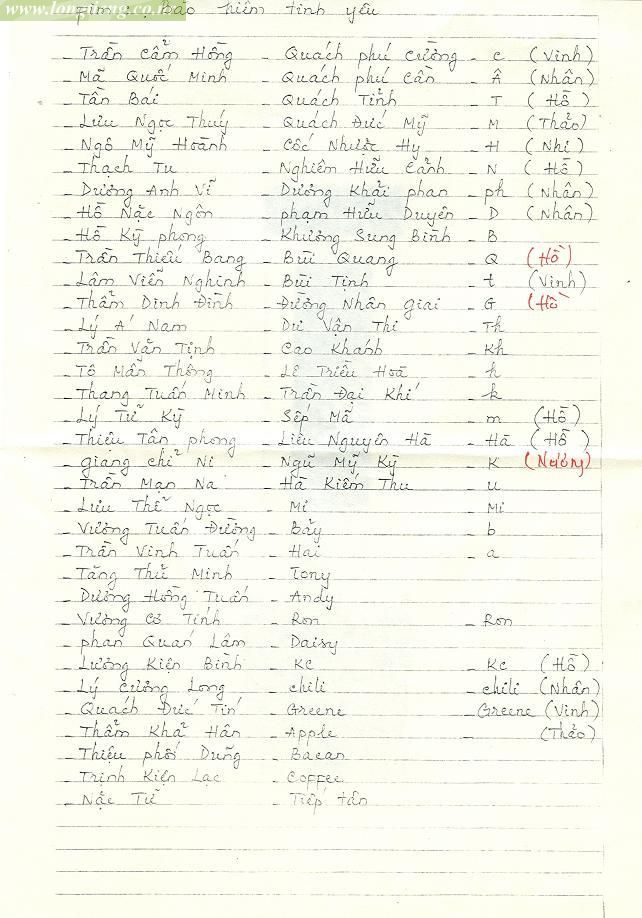 www.longitong.co.n
fim : Bảo hiểm tình yêu
_ Trần Cẩm Hồng - Quách phú Cường - c (Vinh)
_ Mã Quốc Minh - Quách phú Cần - Â (Nhân)
_ Tần Bái - Quách Tỉnh - T (Hồ)
_ Lưu Ngọc Thuý - Quách Đức Mỹ - M (Thảo)
_ Ngô Mỹ Hoành - Cốc Nhược Hy - H (Nhi)
_ Thạch Tu - Nghiêm Hữu Cảnh - N (Hồ)
_ Dương Anh Vĩ - Dương Khải phan - ph (Nhân)
_ Hồ Nặc Ngôn - phạm Hữu Duyên - D (Nhân)
_ Hồ Kỳ phong - Khương Sung Bình - B
_ Trần Thiếu Bang - Bùi Quang - Q (Hồ)
_ Lâm Viễn Nghinh - Bùi Tịnh - t (Vinh)
_ Thẩm Dinh Đình - Đường Nhân Giai - G (Hồ
_ Lý Á Nam - Dư Vận Thi - Th
_ Trần Văn Tịnh - Cao Khánh - Kh
_ Tô Mẫn Thông - Lê Triều Hoà - h
_ Thang Tuấn Minh - Trần Đại Khí - k
_ Lý Tử Kỳ - Sếp Mã - m (Hồ)
_ Thiệu Tân phong - Liêu Nguyên Hà - Hà (Hồ)
_ giang chỉ Ni - Ngũ Mỹ Kỳ - K (Nương)
_ Trần Mạn Na - Hà Kiếm Thu - u
_ Lưu Thể Ngọc - Mi - Mi
_ Vương Tuấn Đường - Bảy - b
_ Trần Vinh Tuấn - Hai - a
_ Tăng Thủ Minh - Tony
_ Dương Hồng Tuấn - Andy
_ Vương Cơ Tính - Ron - Ron
_ phan Quan Lâm - Daisy
_ Lương Kiện Bình - Kc - Kc (Hồ)
_ Lý Cương Long - chili - chili (Nhân)
_ Quách Đức Tín - Greene - Greene (Vinh)
_ Thẩm Khả Hân - Apple - (Thảo)
_ Thiệu phối Dung - Bacan
_ Trịnh Kiện Lạc - Coffee
_ Nặc Tử - Tiếp tân